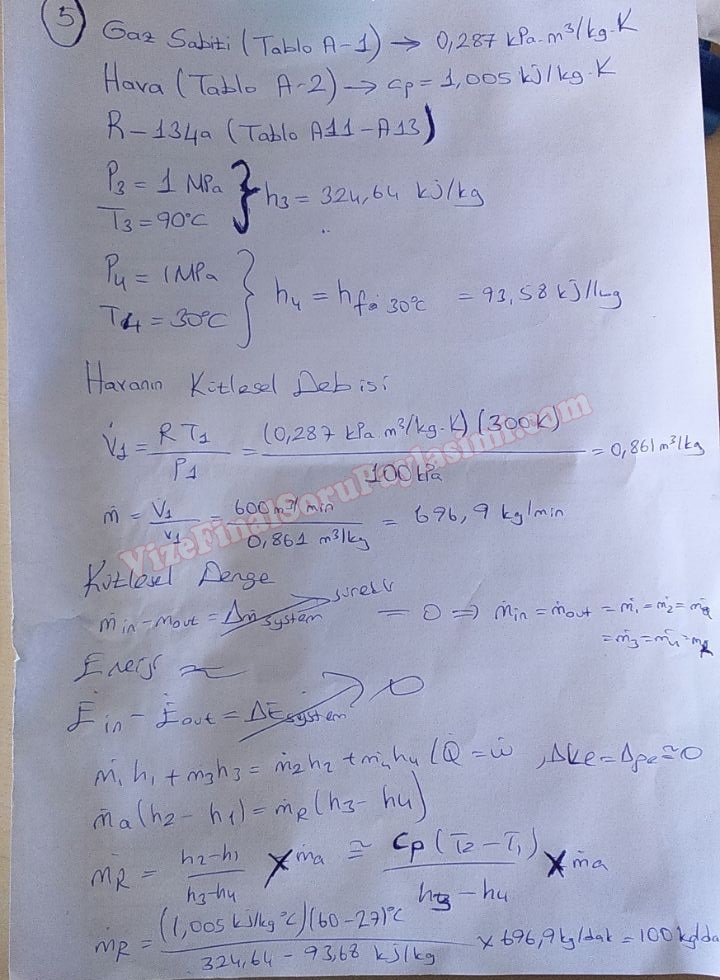 5
Gaz Sabiti (Tablo A-1) → 0,287 kPa.m³/kg.K
Hava (Tablo A-2) → cp = 1,005 kJ/kg.K
R-134a (Tablo A11-A13)
P3 = 1 MPa
T3 = 90°C
} h3 = 324,64 kJ/kg
P4 = 1MPa
T4 = 30°C
} h4 = hf@30°C = 93,58 kJ/kg
Havanın Kütlesel Debisi
V̇1 = R T1 / P1 = (0,287 kPa m³/kg.K) (300K) / 100 kPa = 0,861 m³/kg
ṁ = V̇1 / v1 = 600 m³/min / 0,861 m³/kg = 696,9 kg/min
VizeFinalSoruPaylasimi.com
Kütlesel Denge
ṁin - ṁout = Δṁsystem = 0 ⇒ ṁin = ṁout = ṁ1 = ṁ2 = ṁa
= ṁ3 = ṁ4 = ṁR
Enerji
Ėin - Ėout = ΔĖsystem → 0
ṁ1 h1 + ṁ3 h3 = ṁ2 h2 + ṁ4 h4 (Q̇ = ẇ , Δke = Δpe ≅ 0
ṁa (h2 - h1) = ṁR (h3 - h4)
ṁR = h2-h1 / h3-h4 × ṁa ≅ cp (T2 - T1) / h3 - h4 × ṁa
ṁR = (1,005 kJ/kg°C) (60-27)°C / 324,64 - 93,68 kJ/kg × 696,9 kg/dak = 100 kg/da